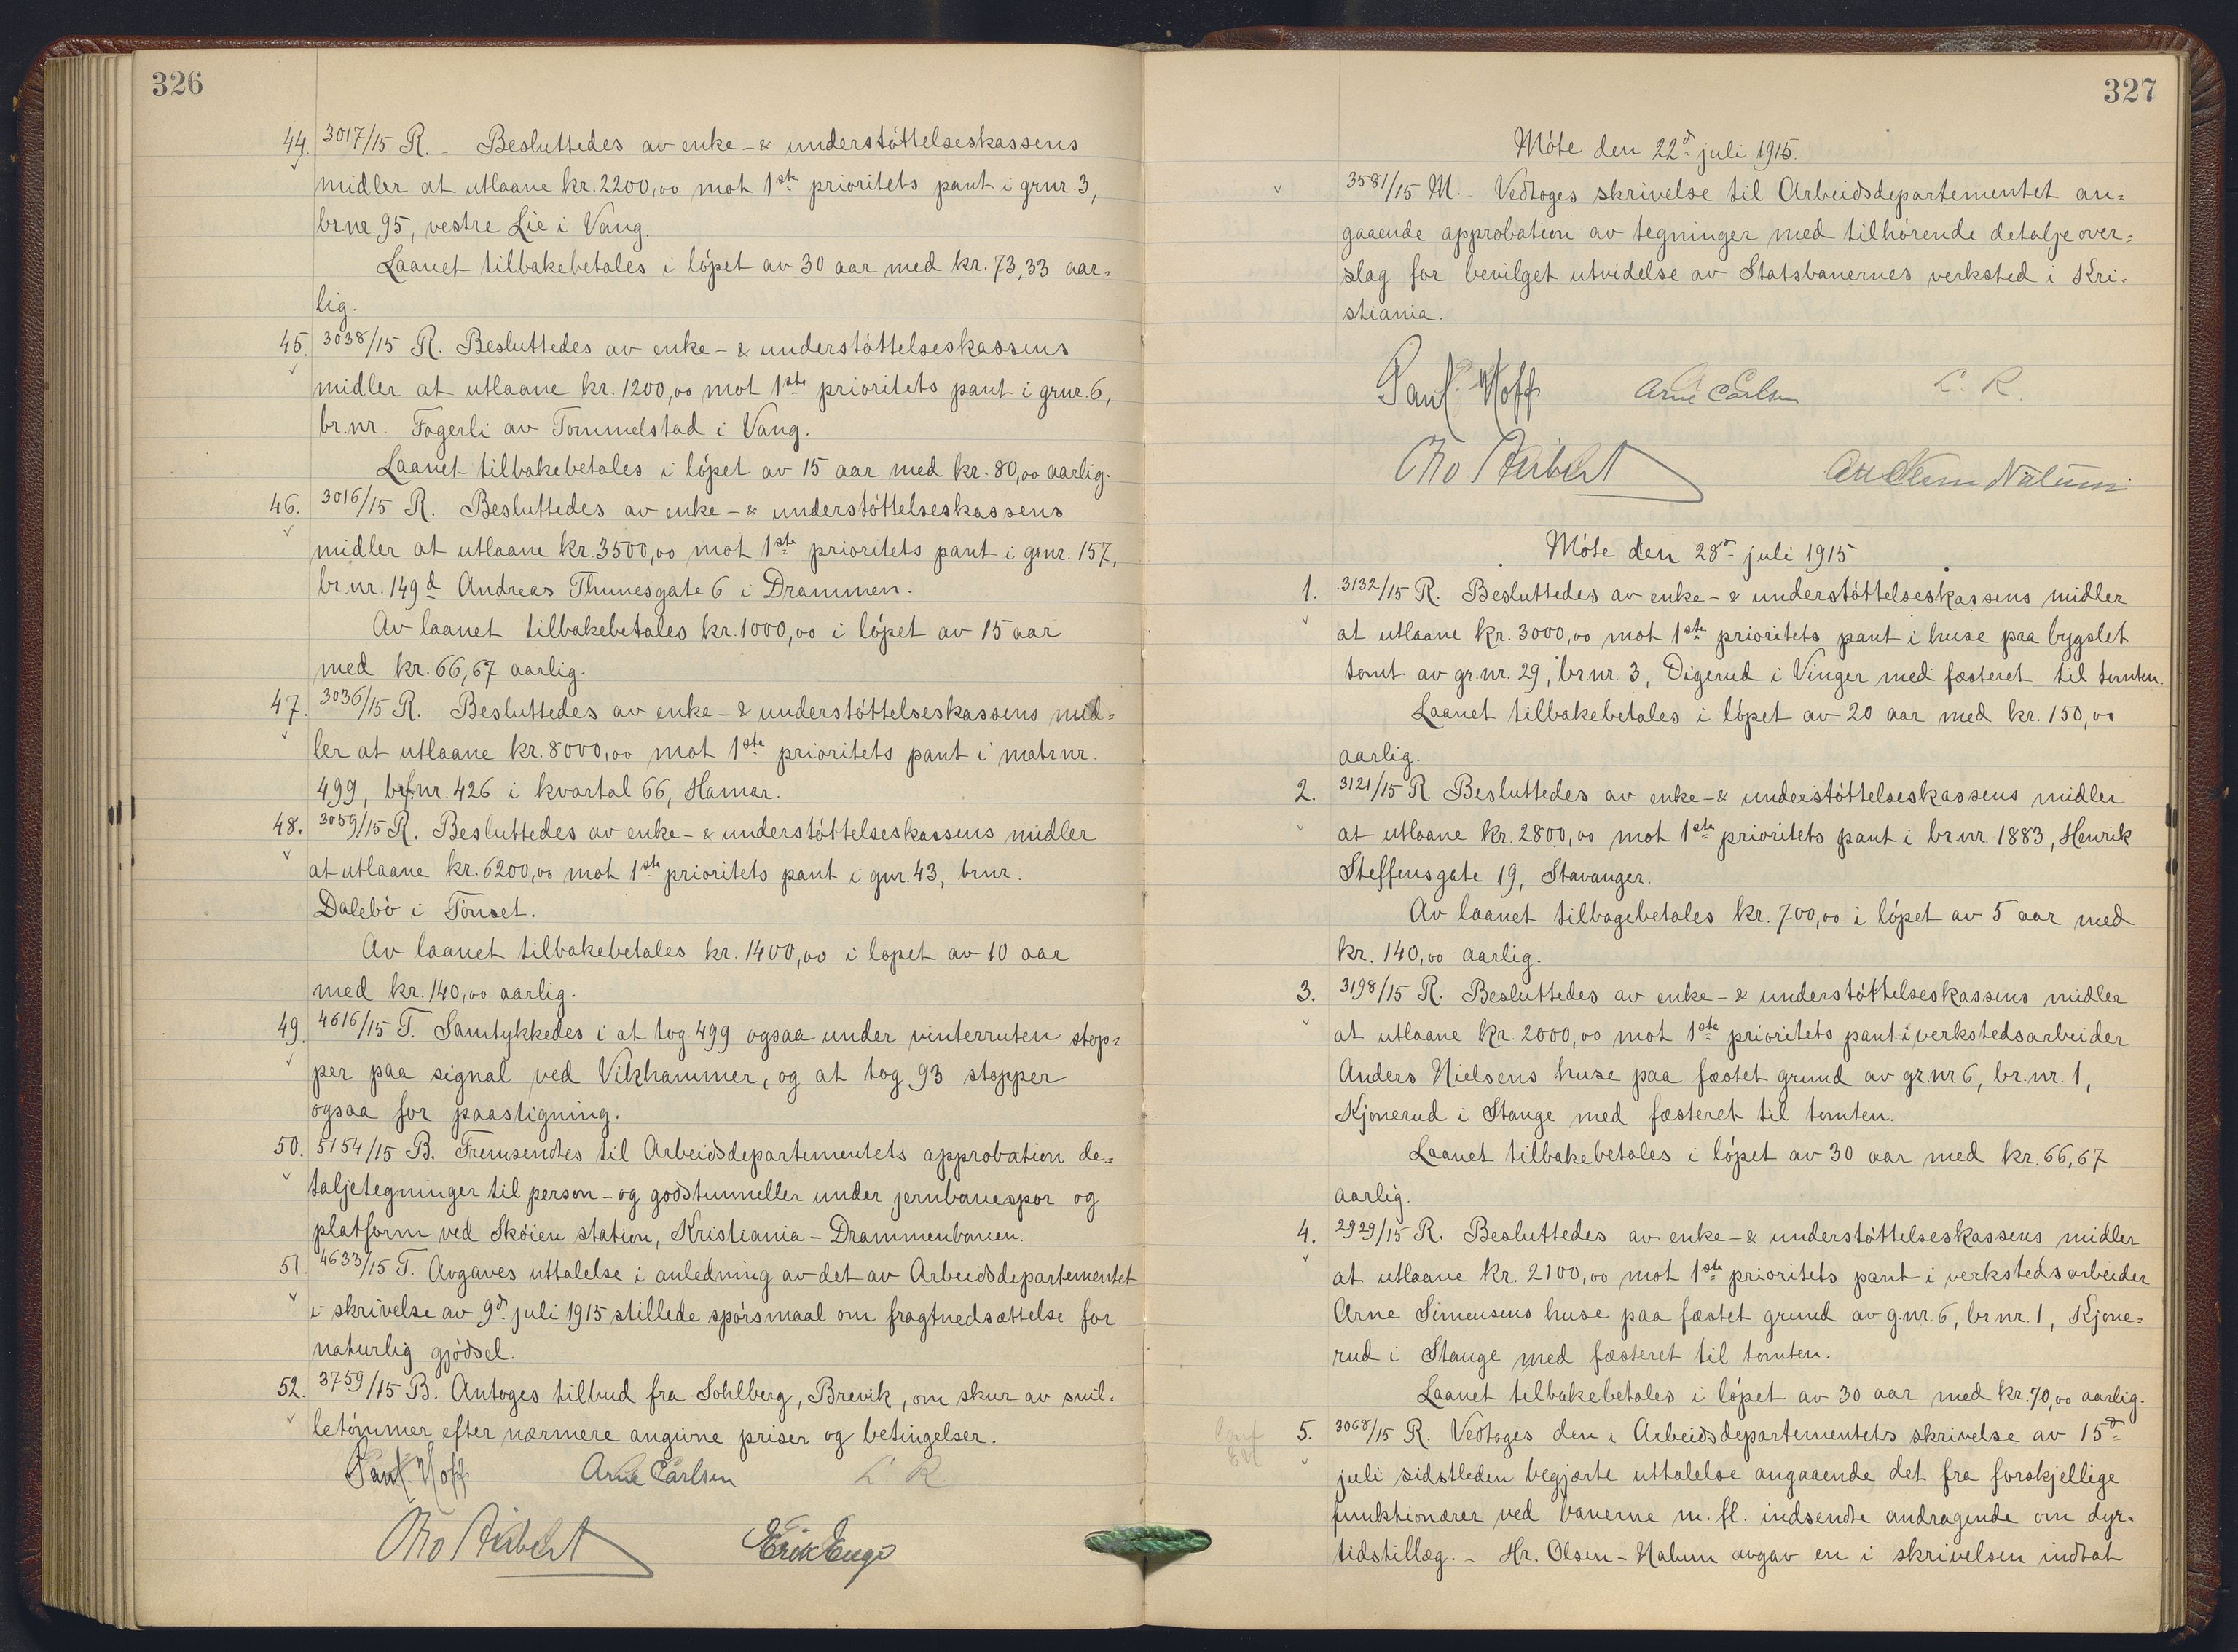 326
44. 3017/15 R. - Besluttedes av enke- & understöttelseskassens
midler at utlaane kr. 2200,00 mot 1ste prioritets pant i grnr. 3,
brnr. 95, vestre Lie i Vang.
Laanet tilbakebetales i löpet av 30 aar med kr. 73,33 aar=
lig.
45. 3038/15 R. Besluttedes av enke- & understöttelseskassens
midler at utlaane kr. 1200,00 mot 1ste prioritets pant i grnr. 6,
br.nr. Fagerli av Tommelstad i Vang.
Laanet tilbakebetales i löpet av 15 aar med kr. 80,00 aarlig.
46. 3016/15 R. Besluttedes av enke- & understöttelseskassens
midler at utlaane kr. 3500,00 mot 1ste prioritets pant i grnr. 157,
br.nr. 149d Andreas Thunesgate 6 i Drammen.
Av laanet tilbakebetales kr. 1000,00 i löpet av 15 aar
med kr. 66,67 aarlig.
47. 3036/15 R. Besluttedes av enke- & understöttelseskassens mid=
ler at utlaane kr. 8000,00 mot 1ste prioritets pant i matrnr.
499, brf.nr. 426 i kvartal 66, Hamar.
48. 3059/15 R. Besluttedes av enke- & understöttelseskassens midler
at utlaane kr. 6200,00 mot 1ste prioritets pant i gnr. 43, brnr.
Dalebö i Tönset.
Av laanet tilbakebetales kr. 1400,00 i lopet av 10 aar
med kr. 140,00 aarlig.
49. 4616/15 T. Samtykkedes i at tog 499 ogsaa under vinterruten stop=
per paa signal ved Vikhammer, og at tog 93 stopper
ogsaa for paastigning.
50. 5154/15 B. Fremsendtes til Arbeidsdepartementets approbation de=
taljetegninger til person- og godstunneller under jernbanespor og
platform ved Sköien station, Kristiania - Drammenbanen.
51. 4633/15 T. Avgaves uttalelse i anledning av det av Arbeidsdepartementet
i skrivelse av 9d. juli 1915 stillede spörsmaal om fragtnedsættelse for
naturlig gjödsel.
52. 3759/15 B. Antoges tilbud fra Sohlberg, Brevik, om skur av svil=
letömmer efter nærmere angivne priser og betingelser.
Paul. Hoff Arne Carlsen L R
Otto Aubert Erik Enge
327
Möte den 22d. juli 1915.
3581/15 M. - Vedtoges skrivelse til Arbeidsdepartementet an=
gaaende approbation av tegninger med tilhörende detaljeover=
slag for bevilget utvidelse av Statsbanernes verksted i Kri=
stiania.
Paul. Hoff Arne Carlsen L. R.
Otto Aubert
Möte den 28d. juli 1915
1. 3132/15 R. Besluttedes av enke- & understöttelseskassens midler
at utlaane kr. 3000,00 mot 1ste prioritets pant i huse paa bygslet
tomt av gr.nr. 29, brnr. 3, Digerud i Vinger med fæsteret til tomten.
Laanet tilbakebetales i löpet av 20 aar med kr. 150,00
aarlig.
2. 3121/15 R. Besluttedes av enke- & understöttelseskassens midler
at utlaane kr. 2800,00 mot 1ste prioritets pant i brnr. 1883, Henrik
Steffensgate 19, Stavanger.
Av laanet tilbagebetales kr. 700,00 i löpet av 5 aar med
kr. 140,00 aarlig.
3. 3198/15 R. Besluttedes av enke- & understöttelseskassens midler
at utlaane kr. 2000,00 mot 1ste prioritets pant i verkstedsarbeider
Anders Nielsens huse paa fæstet grund av gr.nr 6, br.nr. 1,
Kjonerud i Stange med fæsteret til tomten.
Laanet tilbakebetales i löpet av 30 aar med kr. 66,67
aarlig.
4. 2929/15 R. Besluttedes av enke- & understöttelseskassens midler
at utlaane kr. 2100,00 mot 1ste prioritets pant i verkstedsarbeider
Arne Simensens huse paa fæstet grund av g.nr. 6, br nr. 1, Kjone=
rud i Stange med fæsteret til tomten.
Laanet tilbakebetales i löpet av 30 aar med kr. 70,00 aarlig.
5. 3068/15 R. Vedtoges den i Arbeidsdepartementets skrivelse av 15d.
juli sidstleden begjærte uttalelse angaaende det fra forskjellige
funktionærer ved banerne m. fl. indsendte andragende om dyr=
tidstillæg. - Hr. Olsen-Nalum avgav en i skrivelsen indtat